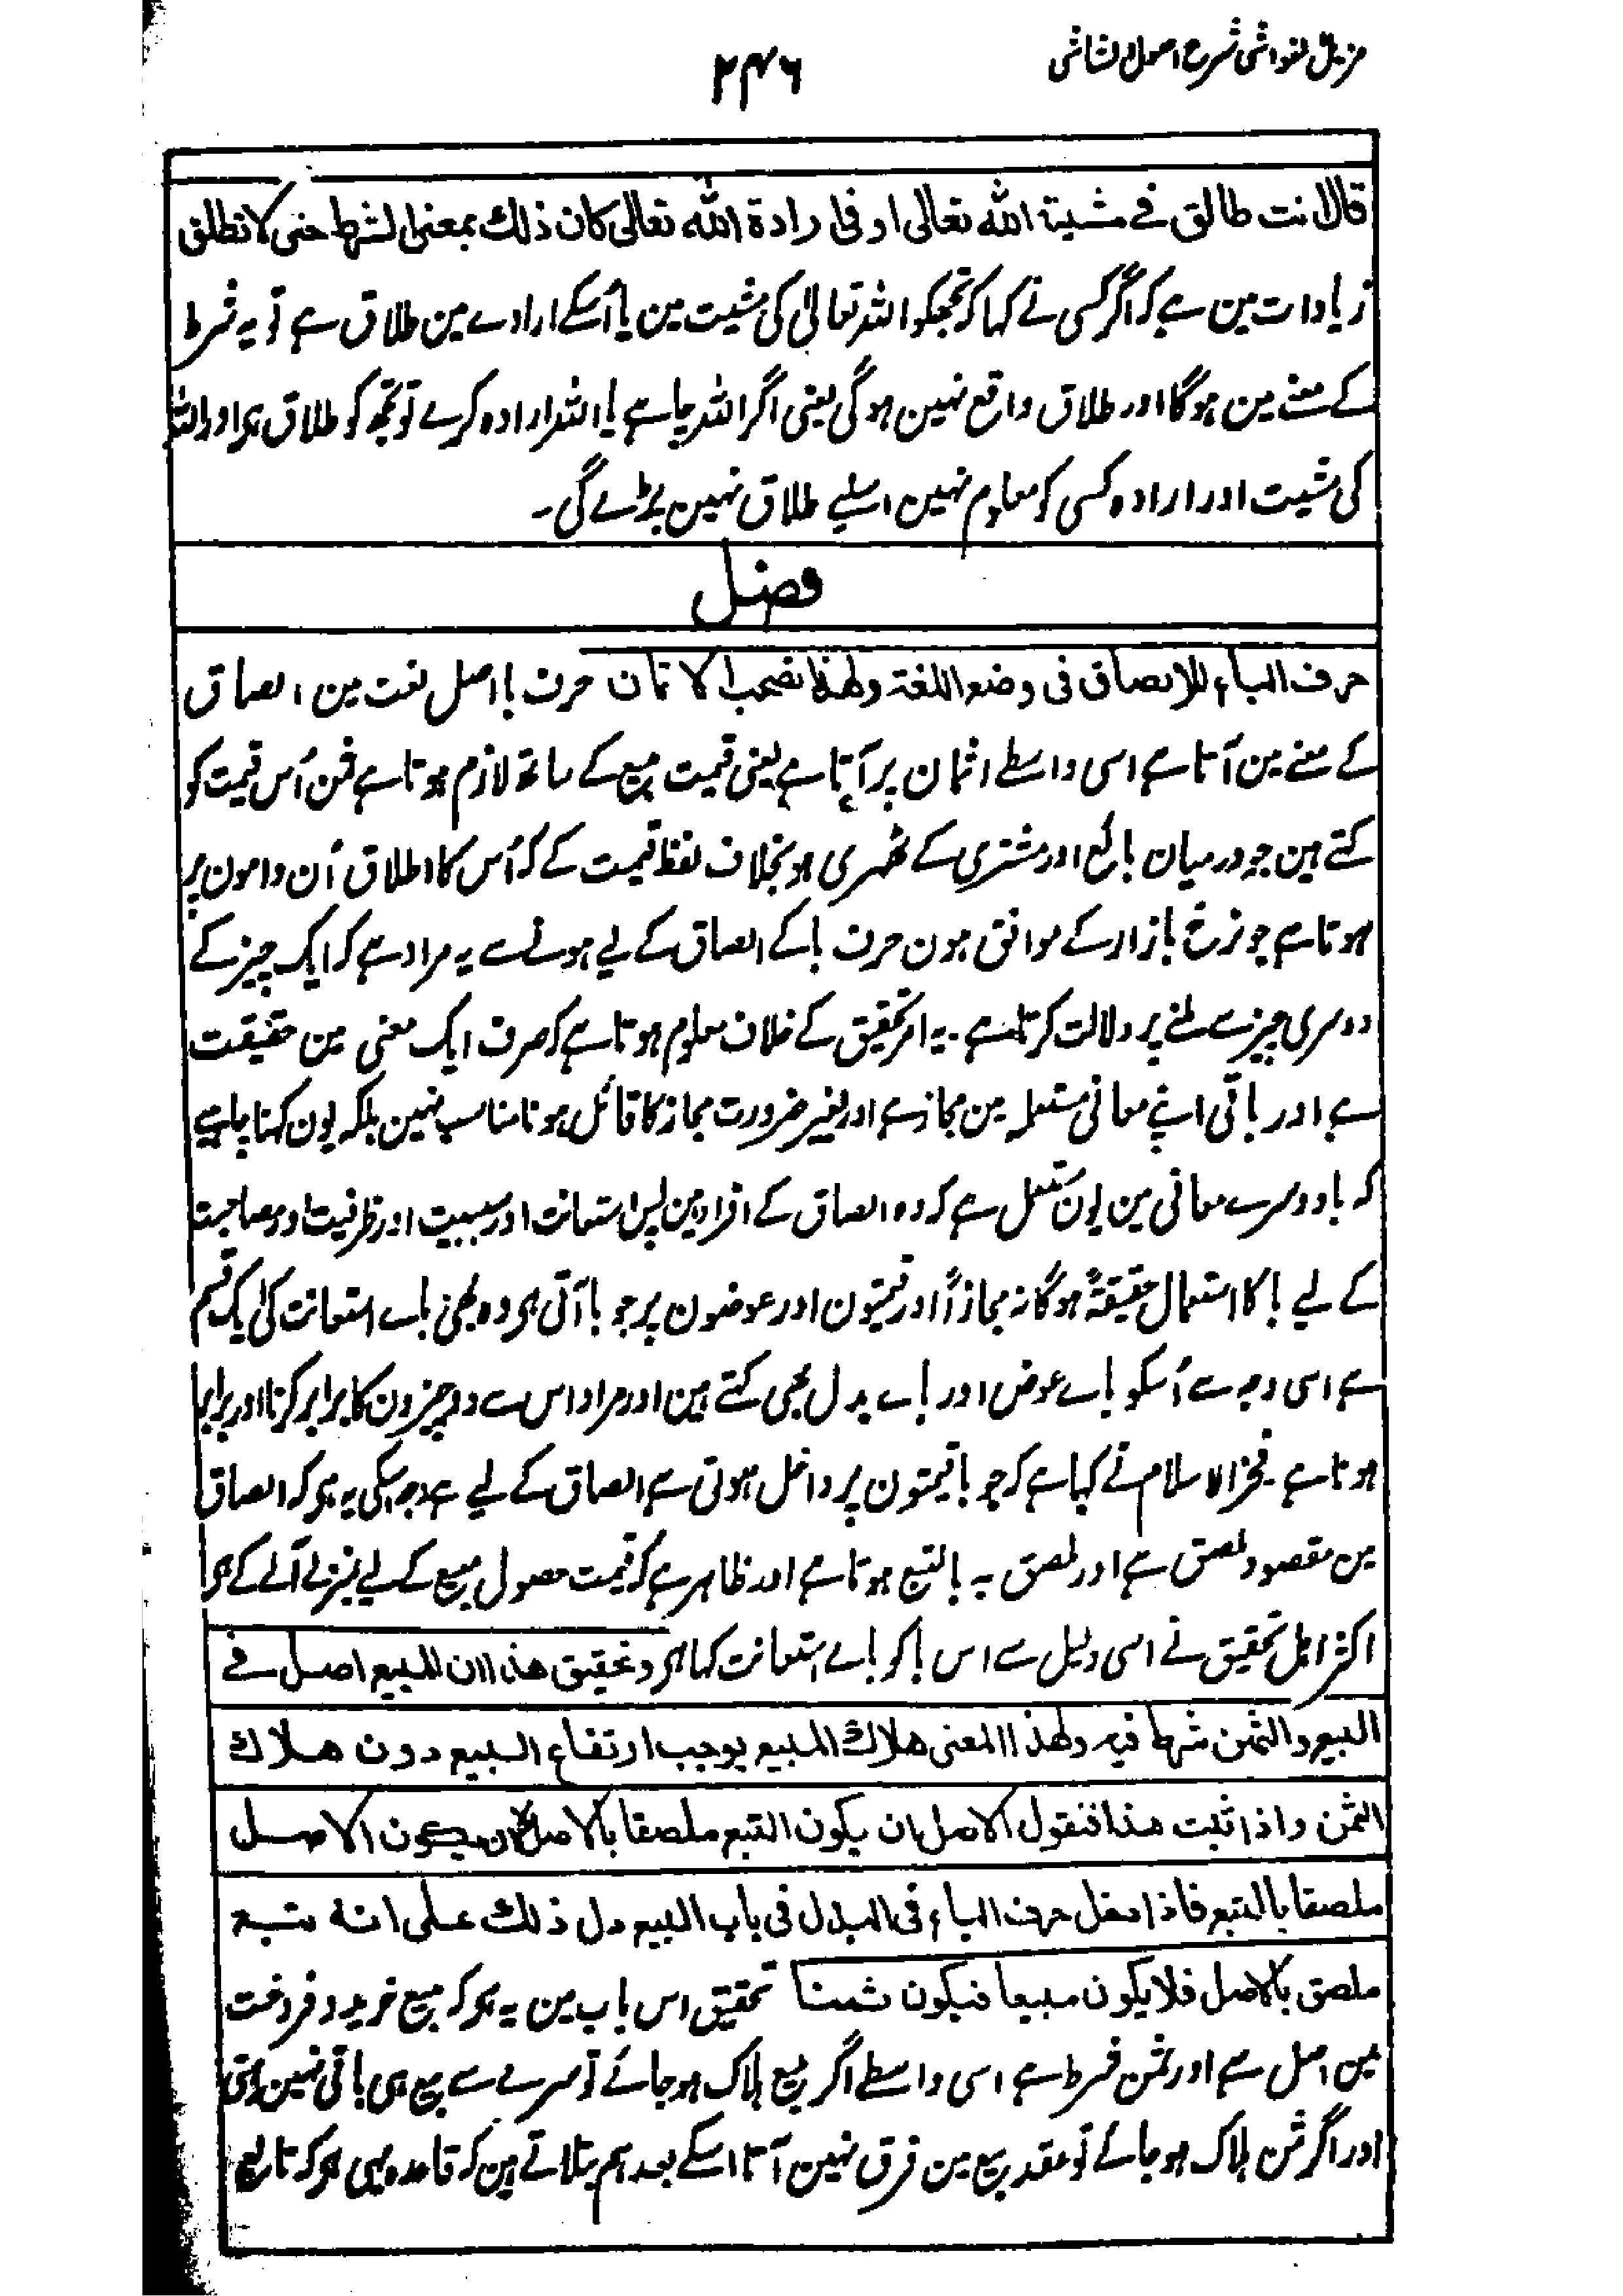 مزیل الغواشی شرح اصول الشاشی
۲۴۶
قال انت طالق فی مشیۃ اللہ تعالی او فی ارادۃ اللہ تعالی کان ذلک بمعنی الشرط حتی لا تطلق
زیادات مین ہے کہ اگر کسی نے کہا کہ تجھکو اللہ تعالیٰ کی مشیت مین یا اُسکے ارادے مین طلاق ہے تو یہ شرط
کے معنے مین ہوگا اور طلاق واقع نہین ہوگی یعنی اگر اللہ چاہے یا اللہ ارادہ کرے تو تجھ کو طلاق ہو اور اللہ
کی مشیت اور ارادہ کسی کو معلوم نہین اسلیے طلاق نہین پڑے گی۔
فصل
حرف الباء للالصاق فی وضع اللغۃ ولہذا تصحب الاثمان حرف با اصل لغت مین الصاق
کے معنے مین آتا ہے اسی واسطے اثمان پر آتا ہے یعنی قیمت مبیع کے ساتھ لازم ہوتا ہے ثمن اُس قیمت کو
کہتے ہین جو درمیان بائع اور مشتری کے ٹھہری ہو بخلاف لفظ قیمت کے کہ اُس کا اطلاق اُن دامون پر
ہوتا ہے جو نرخ بازار کے موافق ہون حرف با کے الصاق کے لیے ہونے سے یہ مراد ہے کہ ایک چیز کے
دوسری چیز سے ملنے پر دلالت کرتا ہے۔ یہ امر تحقیق کے خلاف معلوم ہوتا ہے کہ صرف ایک معنی مین حقیقت
ہے اور باقی اپنے معانی مستعملہ مین مجاز ہے اور بغیر ضرورت مجاز کا قائل ہونا مناسب نہین بلکہ یون کہنا چاہیے
کہ با دوسرے معانی مین یون مستعمل ہے کہ وہ الصاق کے افراد ہین پس استعانت اور سببیت اور ظرفیت اور مصاحبت
کے لیے با کا استعمال حقیقۃً ہوگا نہ مجازاً اور قیمتون اور عوضون پر جو با آتی ہو وہ بھی باے استعانت کی ایک قسم
ہے اسی وجہ سے اُسکو باے عوض اور باے بدل بھی کہتے ہین اور مراد اس سے دو چیزون کا برابر کرنا اور برابر
ہوتا ہے۔ فخر الاسلام نے کہا ہے کہ جو با قیمتون پر داخل ہوتی ہے الصاق کے لیے ہے وجہ اسکی یہ ہو کہ الصاق
مین مقصود ملصق ہے اور ملصق بہ بالتبع ہوتا ہے اور ظاہر ہے کہ قیمت حصول مبیع کے لیے بمنزلے آلے کے ہو
اکثر اہل تحقیق نے اسی دلیل سے اس با کو باے استعانت کہا ہو وتحقیق ھذا ان المبیع اصل فی
البیع والثمن شرط فیہ ولھذا المعنی ھلاک المبیع یوجب ارتفاع البیع دون ھلاک
الثمن واذا ثبت ھذا فنقول الاصل ان یکون التبع ملصقا بالاصل لا ان یکون الاصل
ملصقا بالتبع فاذا دخل حرف الباء فی البدل فی باب البیع دل ذلک علی انہ تبع
ملصق بالاصل فلا یکون مبیعا فیکون ثمنا تحقیق اس باب مین یہ ہو کہ مبیع خرید و فروخت
مین اصل ہے اور ثمن شرط ہے اسی واسطے اگر مبیع ہلاک ہو جائے تو سرے سے بیع ہی باقی نہین رہتی
اور اگر ثمن ہلاک ہو جائے تو عقد بیع مین فرق نہین آتا اسکے بعد ہم بتلاتے ہین کہ قاعدہ یہی ہو کہ تابع